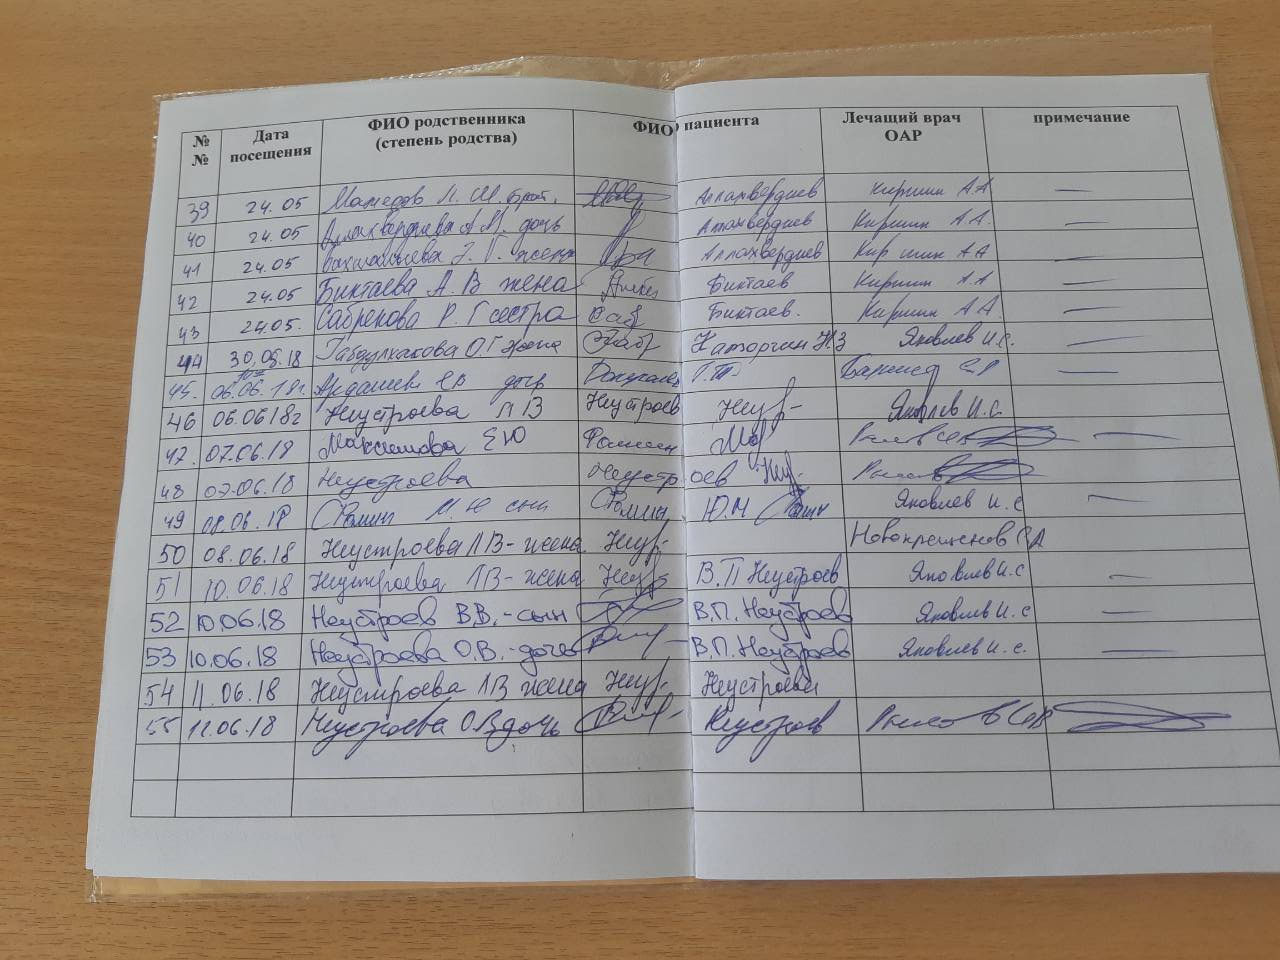 № № Дата посещения ФИО родственника (степень родства) ФИО пациента Лечащий врач ОАР примечание
39 24.05 Мамедов Л. Ш. брат. Аллахвердиев Киришин А А —
40 24.05 Аллахвердиева А М. дочь Аллахвердиев Киришин А А. —
41 24.05 Г. жена Аллахвердиев Киришин А А —
42 24.05 Биктаева А. В жена Биктаев Киришин А. А —
43 24.05. Сабрекова Р. Г сестра Саб Биктаев. Киришин А А. —
44 30.05.18 Габдулхакова О. Г жена Габр Яковлев И. С. —
45. 06.06.18г. Г.Т. —
46 06.06 18г Неустроева Л В Неустроев Неур- Яковлев И. С.
47. 07.06.18 Максимова Е Ю Фомин —
48 07.06.18 Неустроева Неустроев Неур-
49 08.06.18 Фомин М. Ю сын Фомин Ю. М Яковлев И. С —
50 08.06.18 Неустроева Л В - жена Неур- Новокрещенов
51 10.06.18 Неустроева Л В - жена Неур В. П Неустроев Яковлев И. С —
52 10.06.18 Неустроев В.В. - сын В.П. Неустроев Яковлев И. С —
53 10.06.18 Неустроева О.В. - дочь В.П. Неустроев Яковлев И. С. —
54 11.06.18 Неустроева Л В жена Неур- Неустроева
55 11.06.18 Неустроева О.В дочь Неустроев